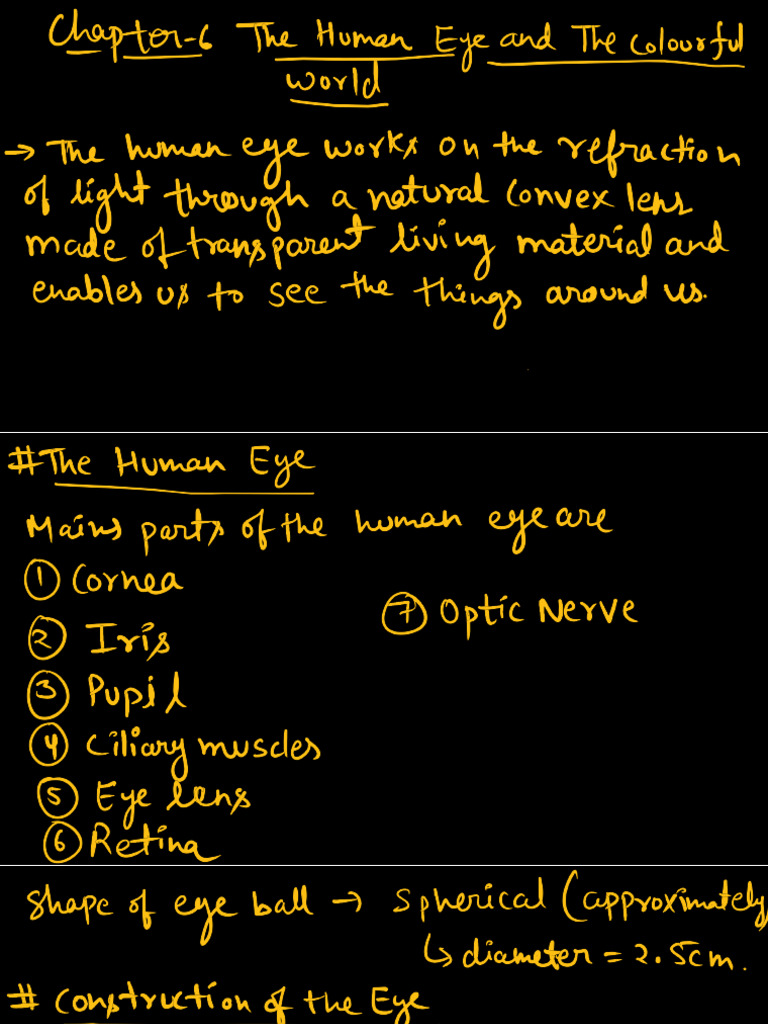 Chapter-6 The Human Eye and The Colourful
world
→ The human eye works on the refraction
of light through a natural convex lens
made of transparent living material and
enables us to see the things around us.
# The Human Eye
Mains parts of the human eye are
① Cornea
② Iris
③ Pupil
④ Ciliary muscles
⑤ Eye lens
⑥ Retina
⑦ Optic Nerve
Shape of eye ball → Spherical (approximately
↳ diameter = 2.5cm.
# Construction of the Eye